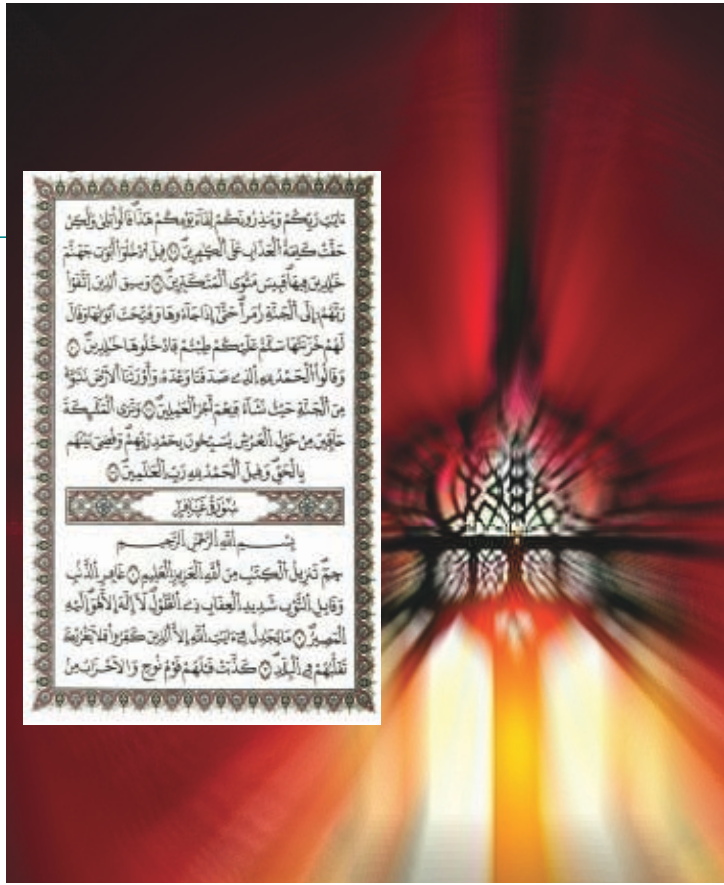 ءَايَٰتِ رَبِّكُمْ وَيُنذِرُونَكُمْ لِقَآءَ يَوْمِكُمْ هَٰذَا قَالُواْ بَلَىٰ وَلَٰكِنْ
حَقَّتْ كَلِمَةُ اُلْعَذَابِ عَلَى اَلْكٰ۪فِرِينَ قِيلَ اَدْخُلُوٓاْ أَبْوَٰبَ جَهَنَّمَ
خَٰلِدِينَ فِيهَا فَبِيسَ مَثْوَى اَلْمُتَكَبِّرِينَ وَسِيقَ اَلذِينَ اَتَّقَوْاْ
رَبَّهُمُۥٓ إِلَى اَلْجَنَّةِ زُمَراً حَتَّىٰٓ إِذَا جَآءُوهَا وَفُتِّحَتَ اَبْوَٰبُهَا وَقَالَ
لَهُمْ خَزَنَتُهَا سَلَٰمٌ عَلَيْكُمْ طِبْتُمْ فَادْخُلُوهَا خَٰلِدِينَ
وَقَالُواْ اُلْحَمْدُ لِلهِ اِلذِے صَدَقَنَا وَعْدَهُۥ وَأَوْرَثَنَا اَلَارْضَ نَتَبَوَّأُ
مِنَ اَلْجَنَّةِ حَيْثُ نَشَآءُ فَنِعْمَ أَجْرُ اُلْعَٰمِلِينَ وَتَرَى اَلْمَلَٰٓئِكَةَ
حَآفِّينَ مِنْ حَوْلِ اِلْعَرْشِ يُسَبِّحُونَ بِحَمْدِ رَبِّهِمْ وَقُضِيَ بَيْنَهُم
بِالْحَقِّ وَقِيلَ اَلْحَمْدُ لِلهِ رَبِّ اِلْعَٰلَمِينَ
سُورَةُ غَافِرٍ
بِسْمِ اِللَّهِ اِلرَّحْمَٰنِ اِلرَّحِيمِ
حمٓ تَنزِيلُ اُلْكِتَٰبِ مِنَ اَللَّهِ اِلْعَزِيزِ اِلْعَلِيمِ غَافِرِ اِلذَّنۢبِ
وَقَابِلِ اِلتَّوْبِ شَدِيدِ اِلْعِقَابِ ذِے اِلطَّوْلِ لَآ إِلَٰهَ إِلَّا هُوَ إِلَيْهِ
اِلْمَصِيرُ مَا يُجَٰدِلُ فِےٓ ءَايَٰتِ اِللَّهِ إِلَّا اَلذِينَ كَفَرُواْ فَلَا يَغْرُرْكَ
تَقَلُّبُهُمْ فِے اِلْبِلَٰدِ كَذَّبَتْ قَبْلَهُمْ قَوْمُ نُوحٍ وَالَاحْزَابُ مِنۢ